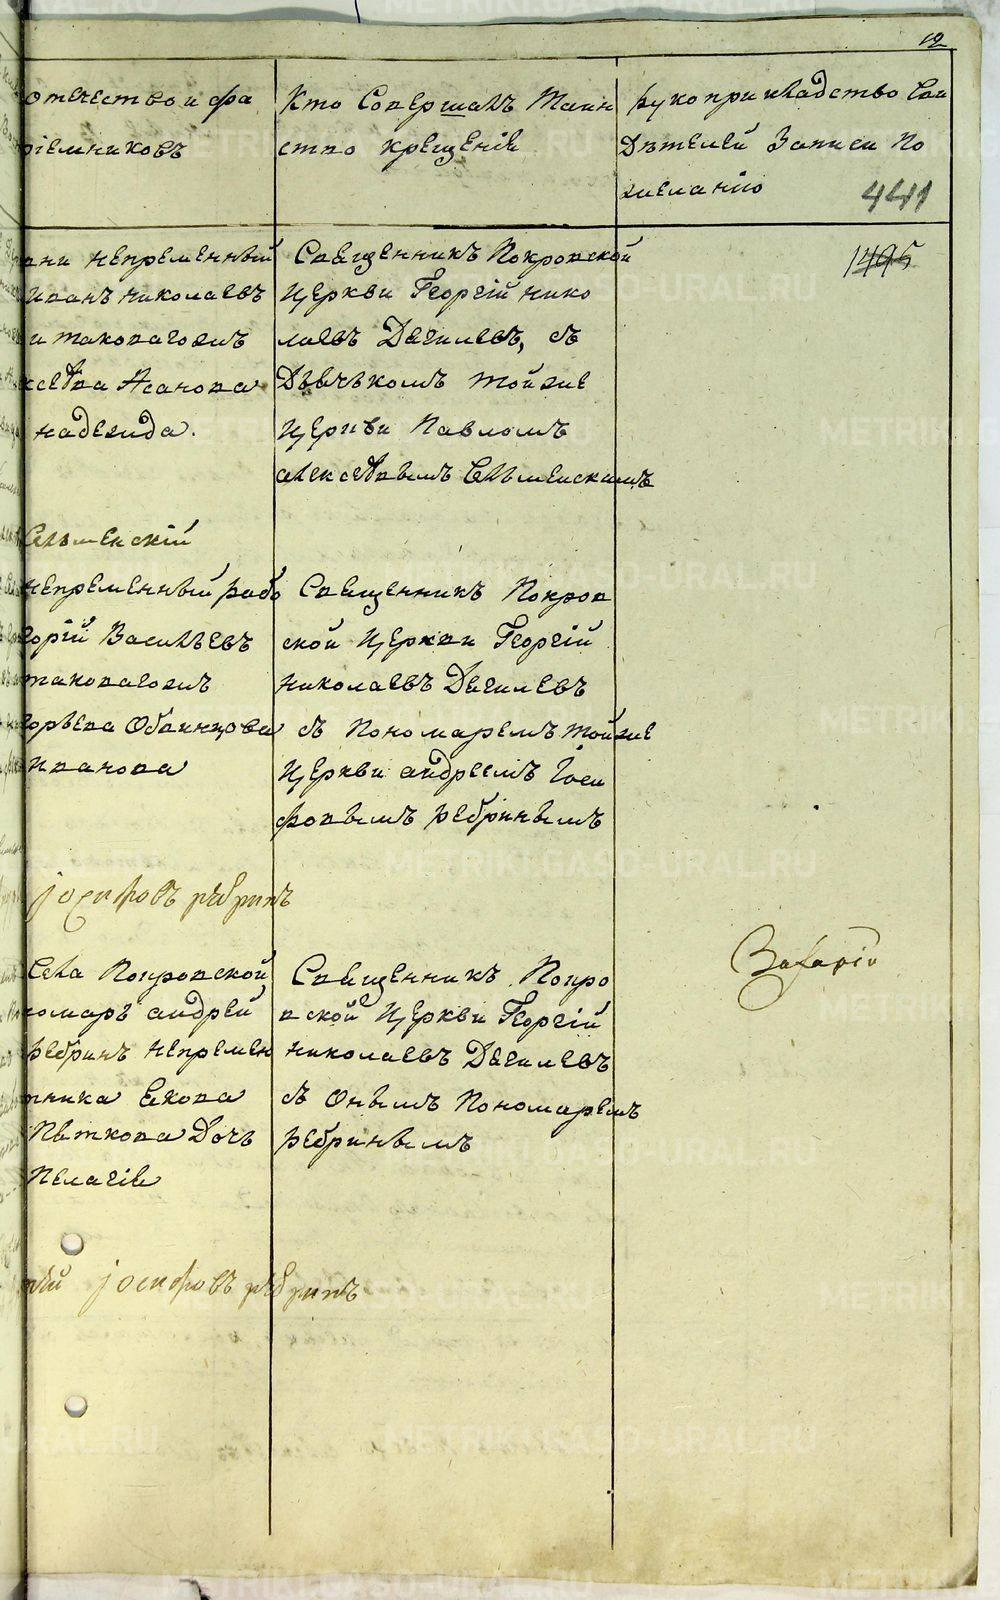 12
отечество и фа
ріемниковъ
Кто Совершалъ Таин
ство крещеніе
Рукоприкладство Сви
Дѣтелей Записи По
желанію
441
1495
непременный
Иванъ Николаевъ
и таковагожъ
Асанова
надежда.
Священникъ Покровской
Церкви Георгій Нико
лаевъ Дягилевъ, съ
Дьячькомъ тойже
Церкви Павломъ
алексѣевымъ
непременный рабо
горій Васильевъ
таковагожъ
горьева Обвинцова
иванова
Священникъ Покров
ской Церкви Георгій
Николаевъ Дягилевъ
съ Пономаремъ тойже
Церкви андреемъ Іоси
фовымъ Ребринымъ
іосифовъ рѣбринъ
Села Покровской
номарь андрей
Ребринъ непремен
тника Екова
Пѣткова Дочь
Пелагіе
Священникъ Покро
вской Церкви Георгій
николаевъ Дягилевъ
съ Онымъ Пономаремъ
Ребринымъ
рѣй іосифовъ рѣбринъ
METRIKI.GASO-URAL.RU